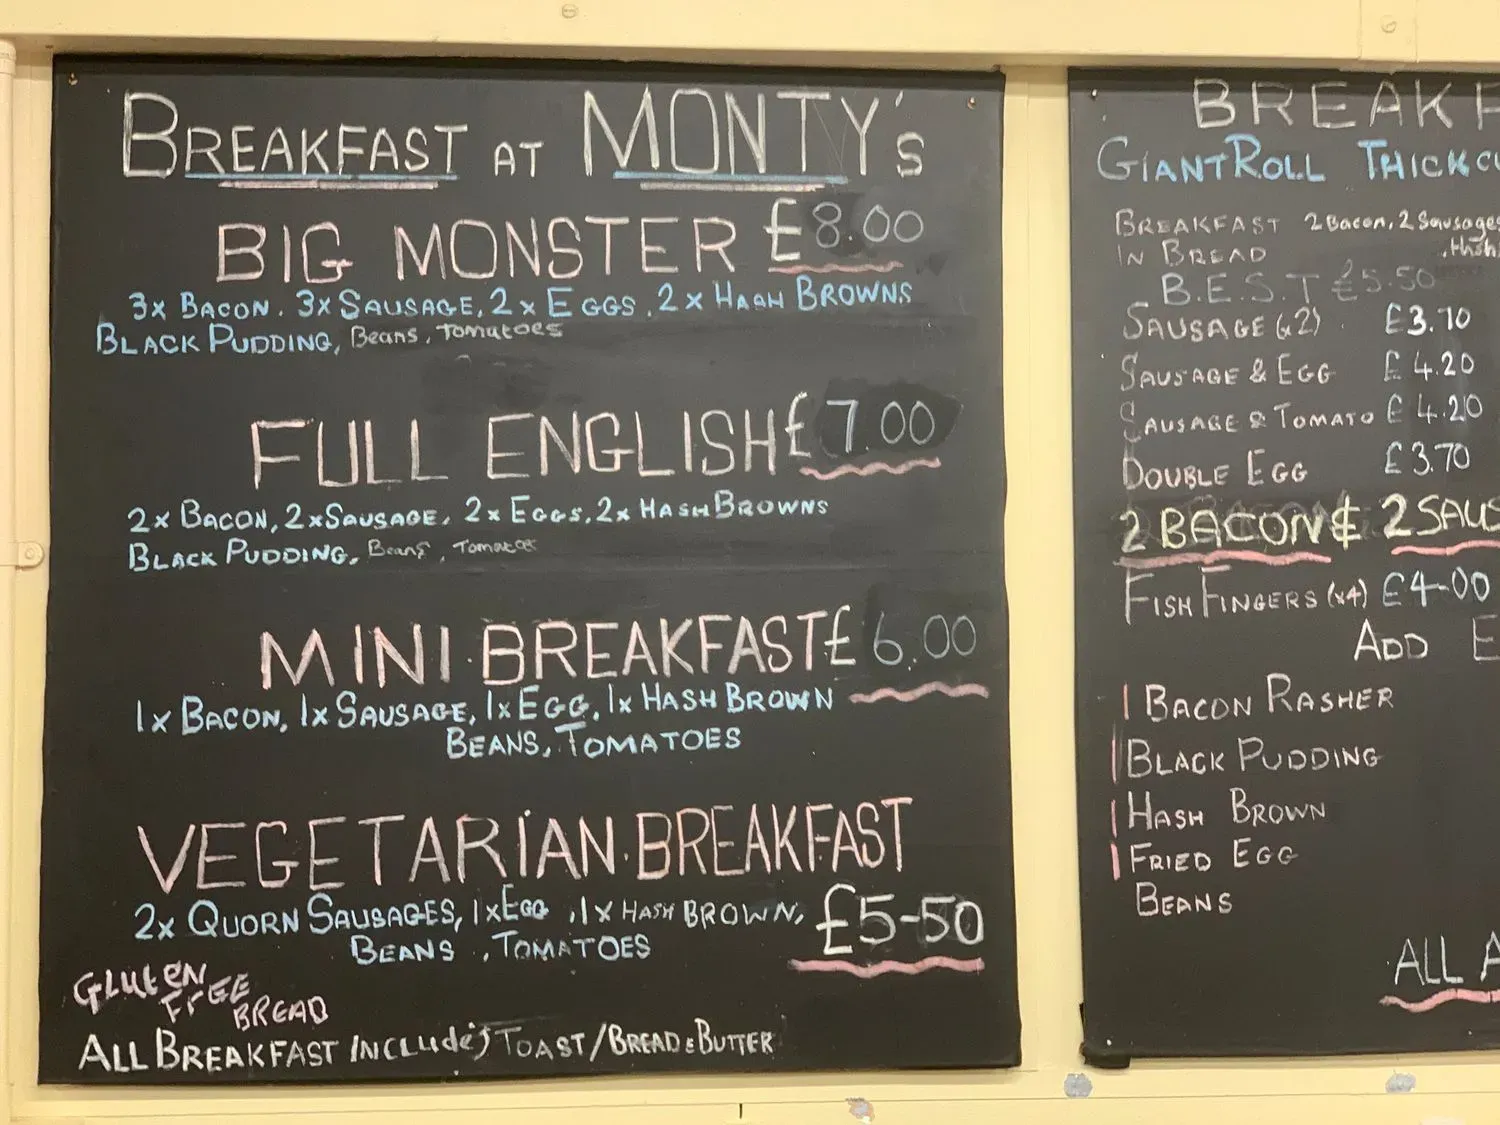 BREAKFAST AT MONTY's
BIG MONSTER £8.00
3x BACON, 3x SAUSAGE, 2x EGGS, 2x HASH BROWNS
BLACK PUDDING, Beans, Tomatoes
FULL ENGLISH £7.00
2x BACON, 2xSAUSAGE, 2x EGGS, 2x HASH BROWNS
BLACK PUDDING, Beans, Tomatoes
MINI BREAKFAST £6.00
1x BACON, 1x SAUSAGE, 1x EGG, 1x HASH BROWN
BEANS, TOMATOES
VEGETARIAN BREAKFAST
2x QUORN SAUSAGES, 1xEGG, 1x HASH BROWN, £5-50
BEANS, TOMATOES
GLUTEN
FREE
BREAD
ALL BREAKFAST INCLUDES TOAST/BREAD & BUTTER
BREAKF
GIANT ROLL THICK CU
BREAKFAST 2 Bacon, 2 Sausages
IN BREAD , Hash
B.E.S.T £5.50
SAUSAGE (x2) £3.70
SAUSAGE & EGG £4.20
SAUSAGE & TOMATO £4.20
DOUBLE EGG £3.70
2 BACON & 2 SAUS
FISH FINGERS (x4) £4-00
ADD E
BACON RASHER
BLACK PUDDING
HASH BROWN
FRIED EGG
BEANS
ALL A